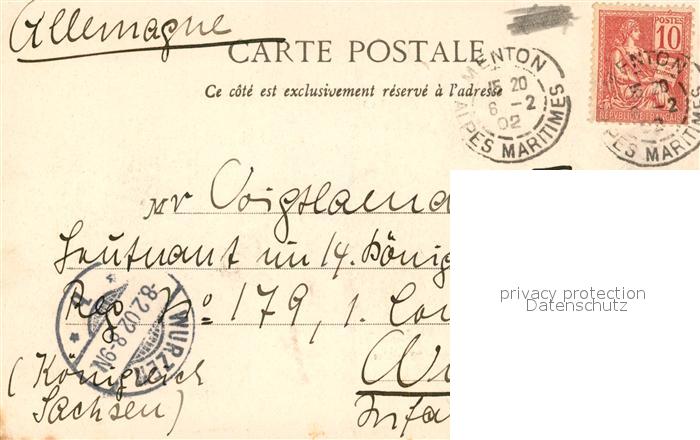 Allemagne
CARTE POSTALE
Ce côté est exclusivement réservé à l'adresse
MENTON
15 20
6 -2
02
ALPES MARITIMES
10
POSTES
RÉPUBLIQUE FRANÇAISE
MENTON
20
-2
ALPES MARITIMES
Mr Voigtlaend
Leutnant im 14. König
Reg. No 179, 1. Com
WURZEN
8.2.02.8-9N
(Königreich
Sachsen)
Wu
Infa
privacy protection
Datenschutz